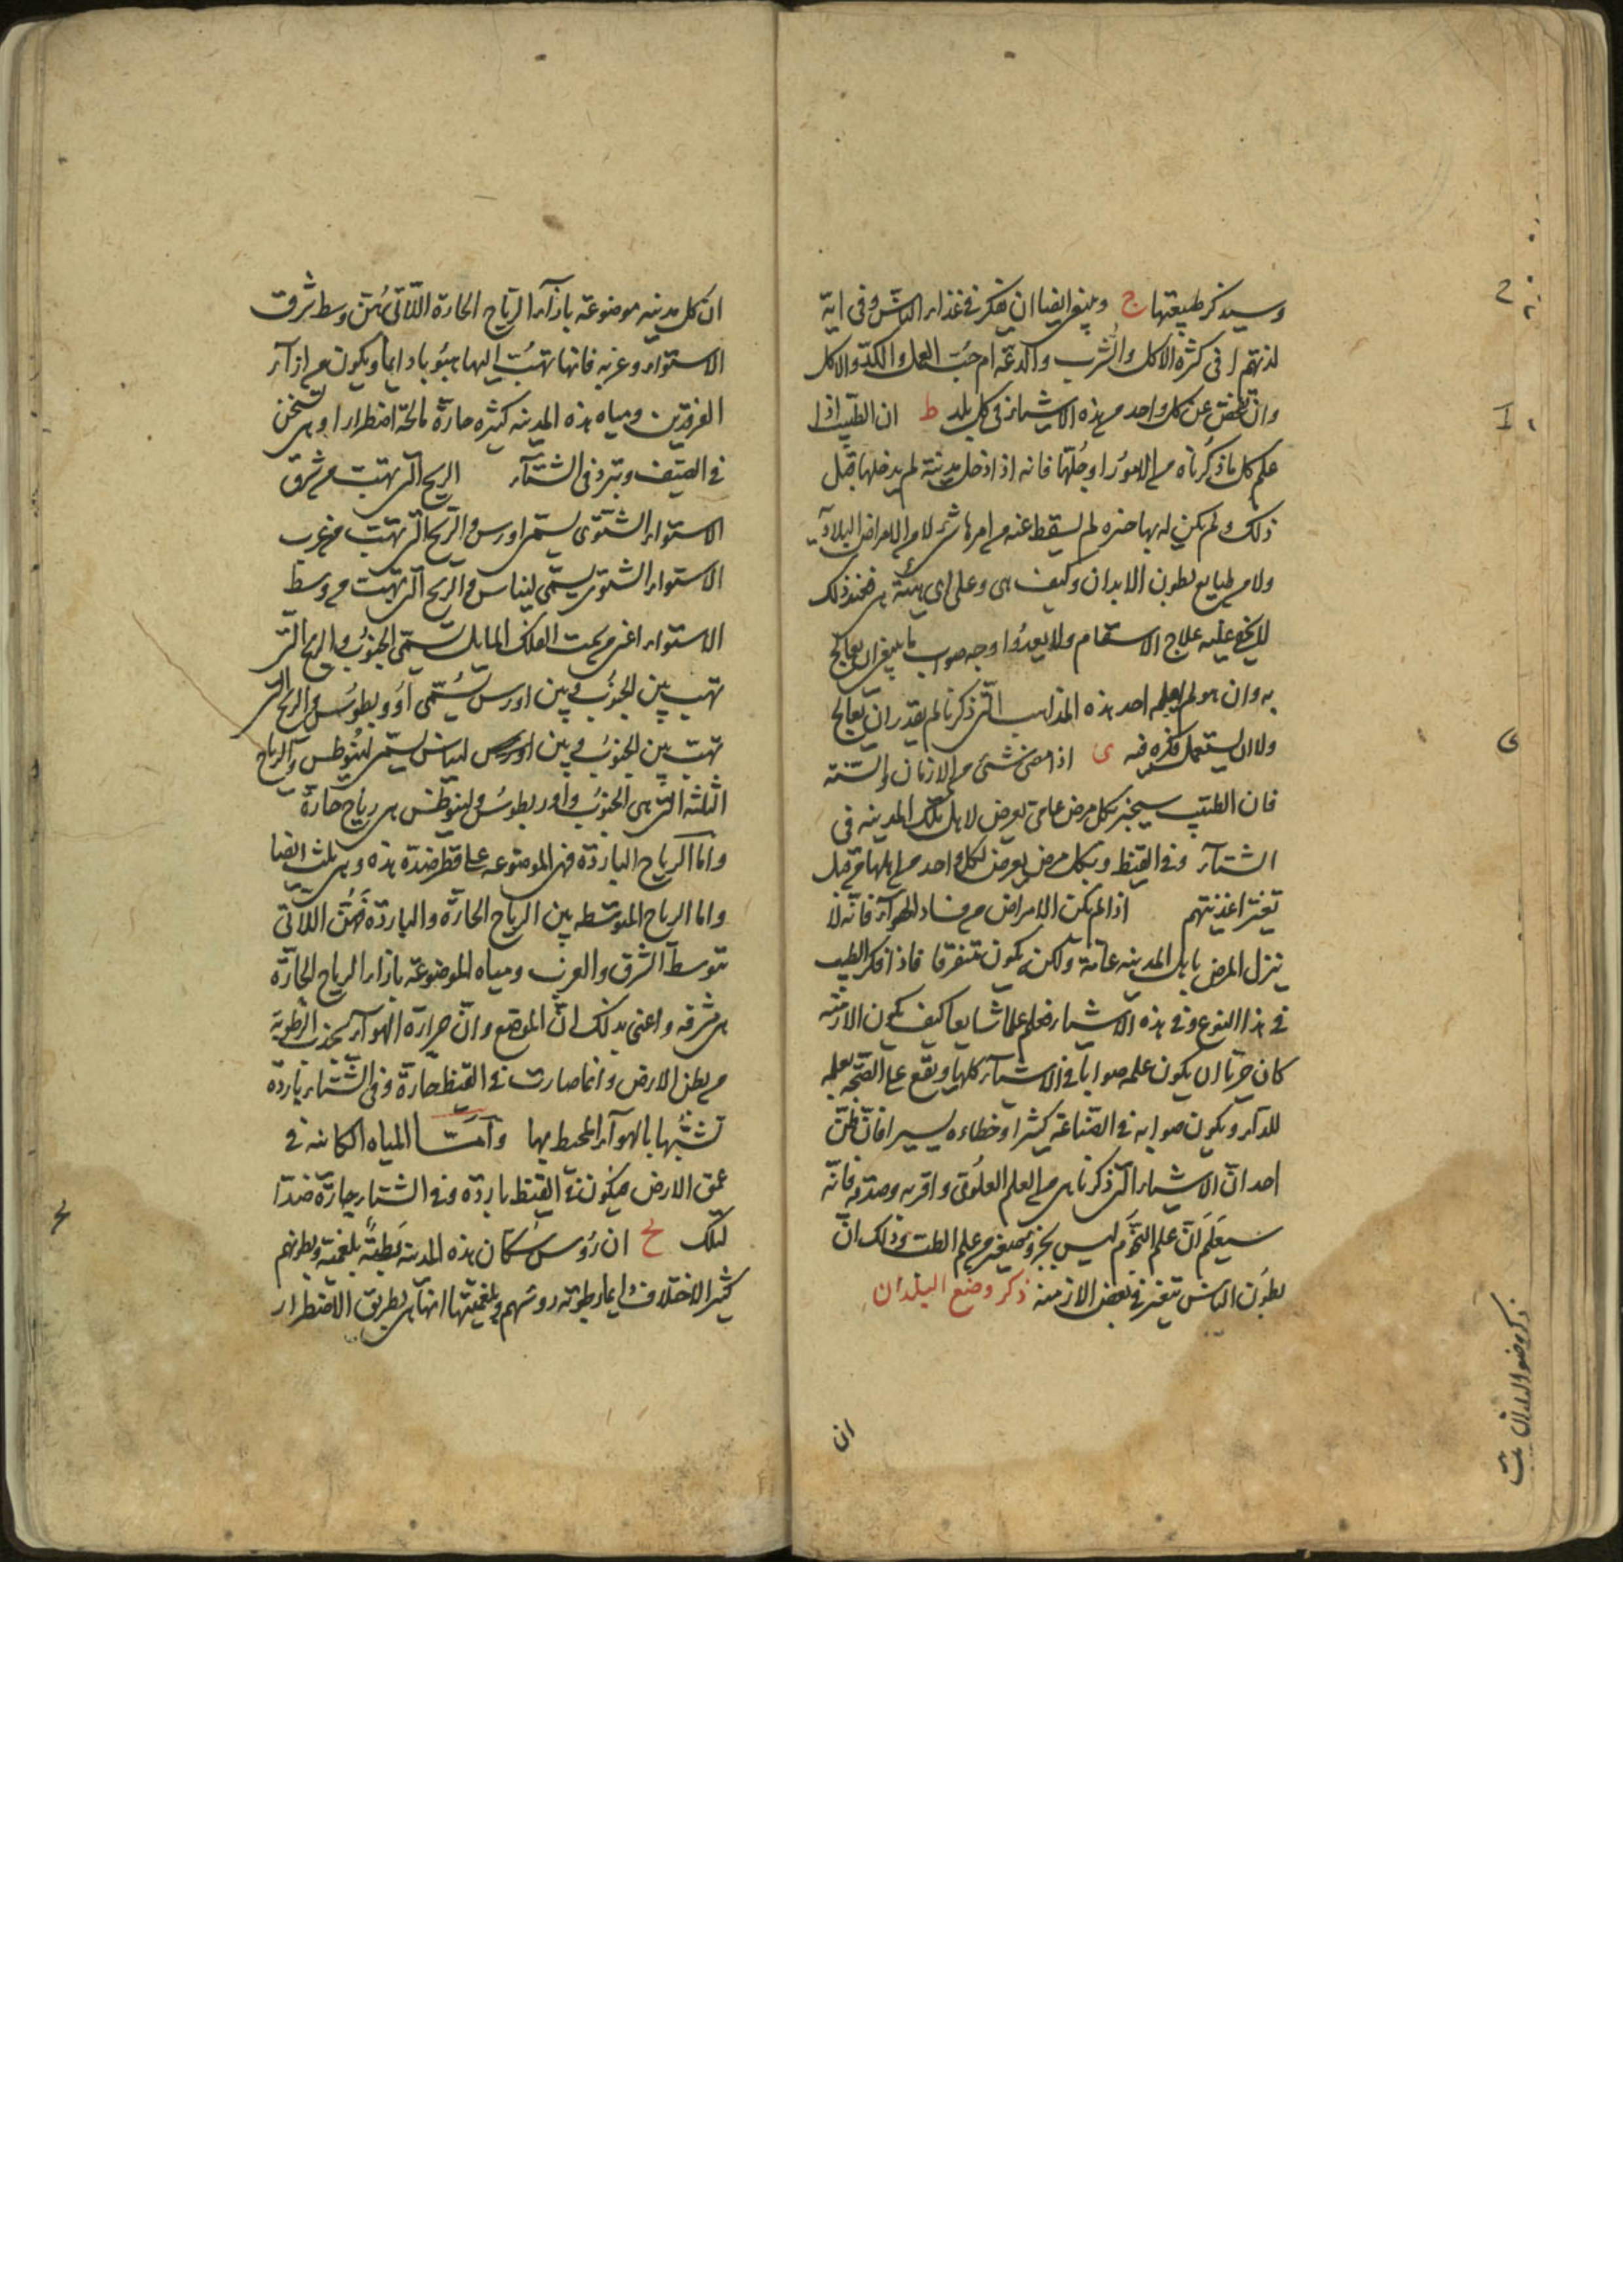 وسيذكر طبيعتها ح وينبغى ايضا ان يفكر فى غذاء الناس وفى اية
لذتهم ا فى كثرة الاكل والشرب والدعة ام حبّ العمل والكدّ والاكل
وان يفحص عن كل واحد من هذه الاشياء فى كل بلد ط ان الطبيب اذا
علم كل ما ذكرناه من الامور او جلّتها فانه اذا دخل مدينة لم يدخلها قبل
ذلك ولم يكن له بها خبره لم يسقط عنه من امرها شئ لا من الامراض البلاديّه
ولا من طبايع بطون الابدان وكيف هى وعلى اى هيئة هى فعند ذلك
لا يخفى عليه علاج الاسقام ولا يعدوا وجه صواب ما ينبغى ان يعالج
به وان هو لم يعلم احد هذه المذاهب التى ذكرنا لم يقدر ان يعالج
ولا ان يستعمل فكره فيه ى اذا مضى شئ من الازمان والسّنة
فان الطبيب سيخبر بكل مرض عامى يعرض لاهل تلك المدينه فى
الشتآء وفى القيظ وبكل مرض يعرض لكل واحد من اهلها من قبل
تغيّر اغذيتهم اذا لم يكن الامراض من فساد الهوآء فانه لا
ينزل المرض باهل المدينه عامة ولكن يكون متفرقا فاذا فكر الطبيب
فى هذا النوع وفى هذه الاشياء فعلم علما شايعا كيف يكون الازمنه
كان حريّا ان يكون علمه صوابا فى الاشيآء كلها ويقع على الصّحه بعلمه
للدآء ويكون صوابه فى الصّناعة كثيرا وخطاءه يسيرا فان ظنّ
احد انّ الاشياء التى ذكرنا هى من العلم العلوى واقربه وصدق به فانّه
سيعلم انّ علم النجوم ليس بجزو صغير من علم الطب وذلك انّ
بطون الناس تتغير فى بعض الازمنه ذكر وضع البلدان
ان
ذكر وضع البلدان
ى
ان كل مدينه موضوعة بازآء الرياح الحارة اللّاتى هنّ وسط شرق
الاستواء وغربه فانها تهبّ اليها هبوبا دايما ويكون من ازآء
الفرقدين ومياه هذه المدينه كثيره حارّة مالحة اضطرارا وهى تسخن
فى الصّيف وتبرد فى الشتآء الريح التى تهبّ من شرق
الاستواء الشتوى يسمى اورس والريح التى تهبّ من غرب
الاستواء الشتوى يسمّى ليباس والريح التى تهبّ من وسط
الاستواء اعنى من تحت الفلك المايل يسمّى الجنوب والريح التى
تهب بين الجنوب وبين اورس يُسمّى اوروبطوس والريح التى
تهبّ بين الجنوب وبين ليباس يسمّى لينوطس والرياح
الثلثه التى هى الجنوب واوربطوس ولينوطس هى رياح حارة
واما الرياح الباردة فهى الموضوعه على قطر ضدّه هذه وهى ثلث ايضا
واما الرياح المتوسّطه بين الرياح الحارّة والباردة فهنّ اللّاتى
تتوسط الشرق والغرب ومياه الموضوعة بازاء الرياح الحارّة
هى مشرقه واعنى بذلك انّ الموضع وانّ حرارة الهوآء يجذب الرّطوبة
من بطن الارض وانما صارت فى القيظ حارّة وفى الشّتاء باردة
تشبّها بالهوآء المحيط بها وامّا المياه الكاينه فى
عمق الارض فيكون فى القيظ باردة وفى الشتاء حارّة ضدّا
لتلك ح ان رؤس سكان هذه المدينة رطبة بلغمية وبطونهم
كثير الاختلاف وايما رطوبة روسهم وبلغميتها انها هى بطريق الاضطرار